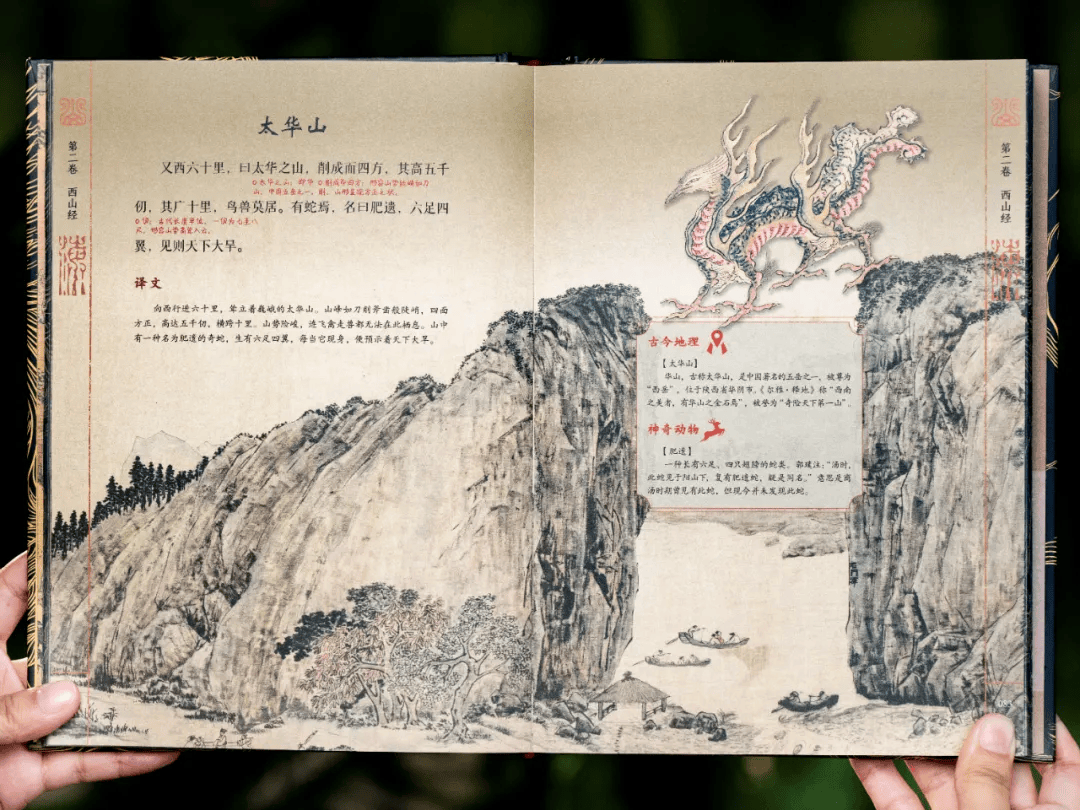 太华山
又西六十里，曰太华之山，削成而四方，其高五千
仞，其广十里，鸟兽莫居。有蛇焉，名曰肥遗，六足四
翼，见则天下大旱。
译文
向西行进六十里，耸立着巍峨的太华山。山峰如刀削斧凿般陡峭，四面
方正，高达五千仞，横跨十里。山势险峻，连飞禽走兽都无法在此栖息。山中
有一种名为肥遗的奇蛇，生有六足四翼，每当它现身，便预示着天下大旱。
第二卷 西山经
古今地理
【太华山】
华山，古称太华山，是中国著名的五岳之一，被尊为
“西岳”，位于陕西省华阴市。《尔雅·释地》称“西南
之美者，有华山之金石焉”，被誉为“奇险天下第一山”。
神奇动物
【肥遗】
一种长有六足、四只翅膀的蛇类。郭璞注：“汤时，
此蛇见于阳山下，复有肥遗蛇，疑是同名。”意思是商
汤时期曾见有此蛇，但现今并未发现此蛇。
第二卷 西山经